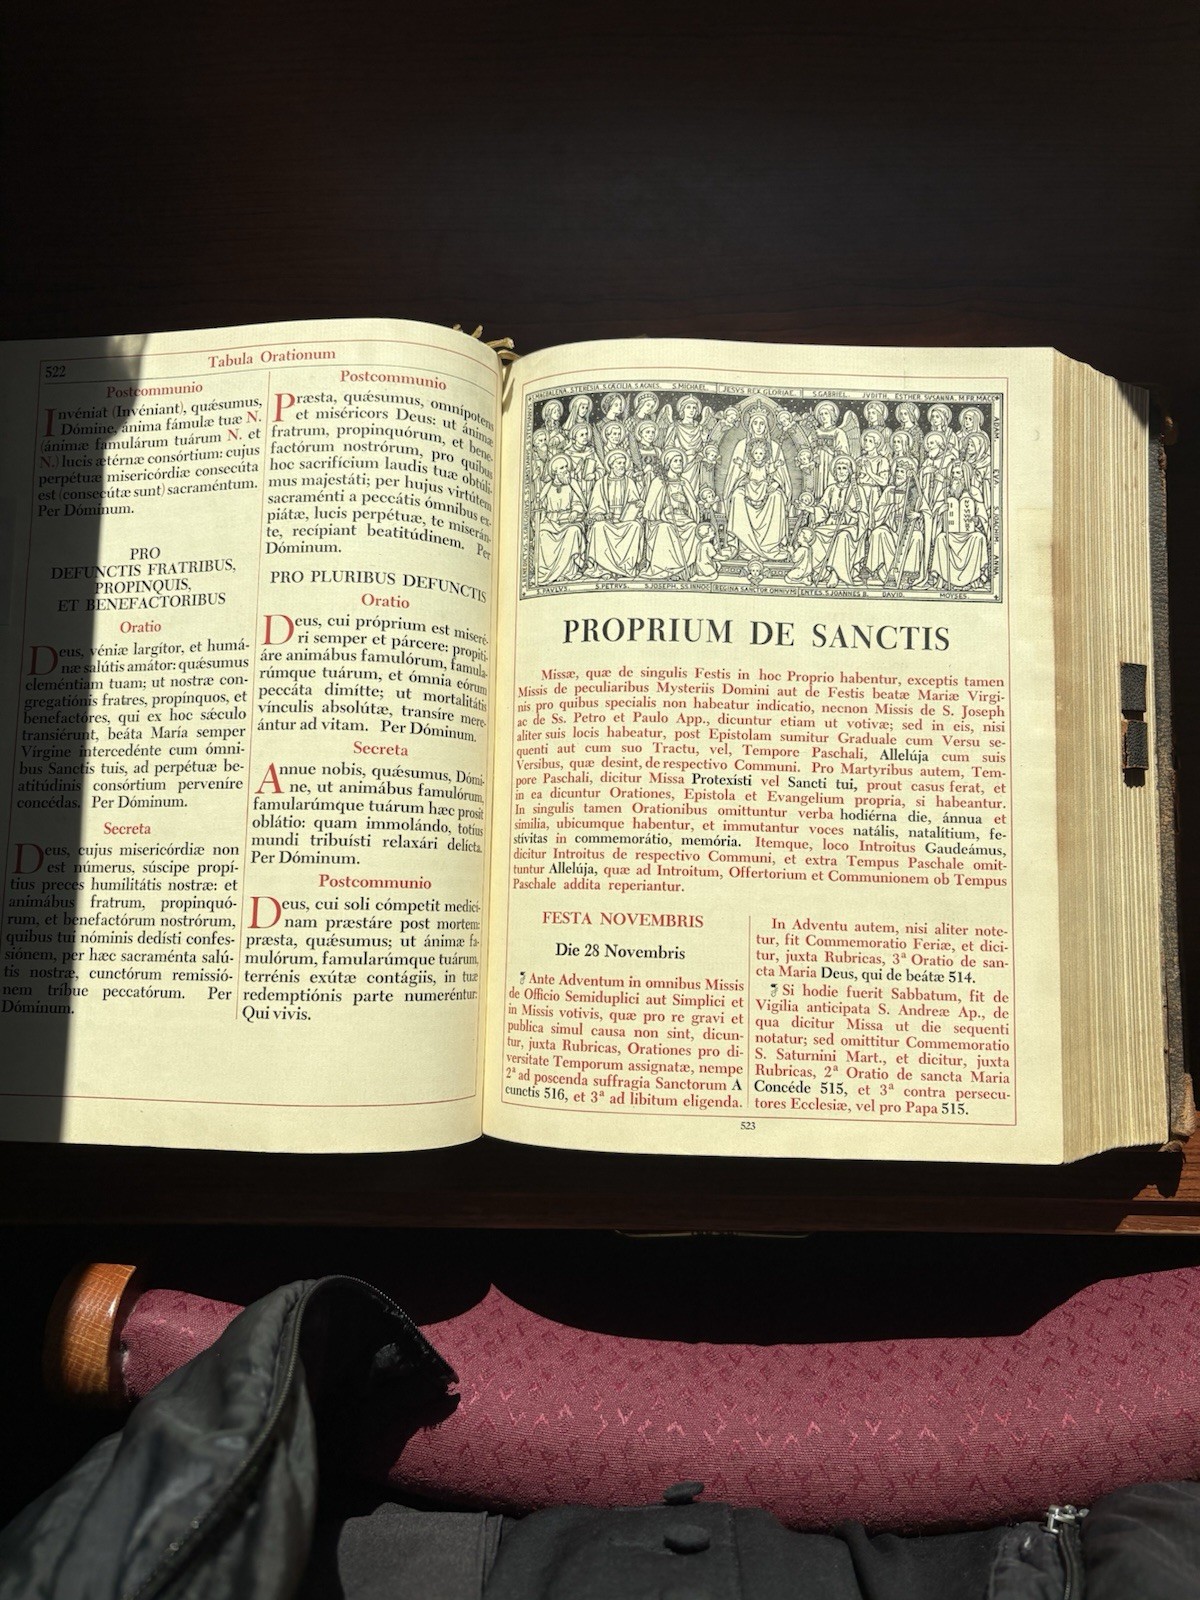 522
Tabula Orationum
Postcommunio
Invéniat (Invéniant), quǽsumus,
Dómine, ánima fámulæ tuæ N.
(ánimæ famulárum tuárum N. et
N.) lucis ætérnæ consórtium: cujus
perpétuæ misericórdiæ consecúta
est (consecútæ sunt) sacraméntum.
Per Dóminum.
PRO
DEFUNCTIS FRATRIBUS,
PROPINQUIS,
ET BENEFACTORIBUS
Oratio
Deus, véniæ largítor, et humá-
næ salútis amátor: quǽsumus
cleméntiam tuam; ut nostræ con-
gregatiónis fratres, propínquos, et
benefactóres, qui ex hoc sǽculo
transiérunt, beáta María semper
Vírgine intercedénte cum ómni-
bus Sanctis tuis, ad perpétuæ be-
atitúdinis consórtium perveníre
concédas. Per Dóminum.
Secreta
Deus, cujus misericórdiæ non
est númerus, súscipe propí-
tius preces humilitátis nostræ: et
animábus fratrum, propinquó-
rum, et benefactórum nostrórum,
quibus tui nóminis dedísti confes-
siónem, per hæc sacraménta salú-
tis nostræ, cunctórum remissió-
nem tríbue peccatórum. Per
Dóminum.
Postcommunio
Præsta, quǽsumus, omnípotens
et miséricors Deus: ut ánimæ
fratrum, propinquórum, et bene-
factórum nostrórum, pro quibus
hoc sacrifícium laudis tuæ obtúli-
mus majestáti; per hujus virtútem
sacraménti a peccátis ómnibus ex-
piátæ, lucis perpétuæ, te miserán-
te, recípiant beatitúdinem. Per
Dóminum.
PRO PLURIBUS DEFUNCTIS
Oratio
Deus, cui próprium est miseré-
ri semper et párcere: propiti-
áre animábus famulórum, famula-
rúmque tuárum, et ómnia eórum
peccáta dimítte; ut mortalitátis
vínculis absolútæ, transíre mere-
ántur ad vitam. Per Dóminum.
Secreta
Annue nobis, quǽsumus, Dómi-
ne, ut animábus famulórum,
famularúmque tuárum hæc prosit
oblátio: quam immolándo, totíus
mundi tribuísti relaxári delícta.
Per Dóminum.
Postcommunio
Deus, cui soli cómpetit medici-
nam præstáre post mortem:
præsta, quǽsumus; ut ánimæ fa-
mulórum, famularúmque tuárum,
terrénis exútæ contágiis, in tuæ
redemptiónis parte numeréntur:
Qui vivis.
MAGDALENA. S.TERESIA. S.CÆCILIA. S.AGNES. S.MICHAEL. JESVS REX GLORIAE. S.GABRIEL. JVDITH. ESTHER. SVSANNA.
ADAM. EVA. S.JOACHIM. ANNA.
S.PAVLVS. S.PETRVS. S.JOSEPH. SS.INNOC REGINA SANCTOR OMNIVM ENTES. S.JOANNES B. DAVID. MOYSES.
PROPRIUM DE SANCTIS
Missæ, quæ de singulis Festis in hoc Proprio habentur, exceptis tamen
Missis de peculiaribus Mysteriis Domini aut de Festis beatæ Mariæ Virgi-
nis pro quibus specialis non habeatur indicatio, necnon Missis de S. Joseph
ac de Ss. Petro et Paulo App., dicuntur etiam ut votivæ; sed in eis, nisi
aliter suis locis habeatur, post Epistolam sumitur Graduale cum Versu se-
quenti aut cum suo Tractu, vel, Tempore Paschali, Allelúja cum suis
Versibus, quæ desint, de respectivo Communi. Pro Martyribus autem, Tem-
pore Paschali, dicitur Missa Protexísti vel Sancti tui, prout casus ferat, et
in ea dicuntur Orationes, Epistola et Evangelium propria, si habeantur.
In singulis tamen Orationibus omittuntur verba hodiérna die, ánnua et
similia, ubicumque habentur, et immutantur voces natális, natalítium, fe-
stívitas in commemorátio, memória. Itemque, loco Introitus Gaudeámus,
dicitur Introitus de respectivo Communi, et extra Tempus Paschale omit-
tuntur Allelúja, quæ ad Introitum, Offertorium et Communionem ob Tempus
Paschale addita reperiantur.
FESTA NOVEMBRIS
Die 28 Novembris
Ante Adventum in omnibus Missis
de Officio Semiduplici aut Simplici et
in Missis votivis, quæ pro re gravi et
publica simul causa non sint, dicun-
tur, juxta Rubricas, Orationes pro di-
versitate Temporum assignatæ, nempe
2ª ad poscenda suffragia Sanctorum A
cunctis 516, et 3ª ad libitum eligenda.
In Adventu autem, nisi aliter note-
tur, fit Commemoratio Feriæ, et dici-
tur, juxta Rubricas, 3ª Oratio de san-
cta Maria Deus, qui de beátæ 514.
Si hodie fuerit Sabbatum, fit de
Vigilia anticipata S. Andreæ Ap., de
qua dicitur Missa ut die sequenti
notatur; sed omittitur Commemoratio
S. Saturnini Mart., et dicitur, juxta
Rubricas, 2ª Oratio de sancta Maria
Concéde 515, et 3ª contra persecu-
tores Ecclesiæ, vel pro Papa 515.
523